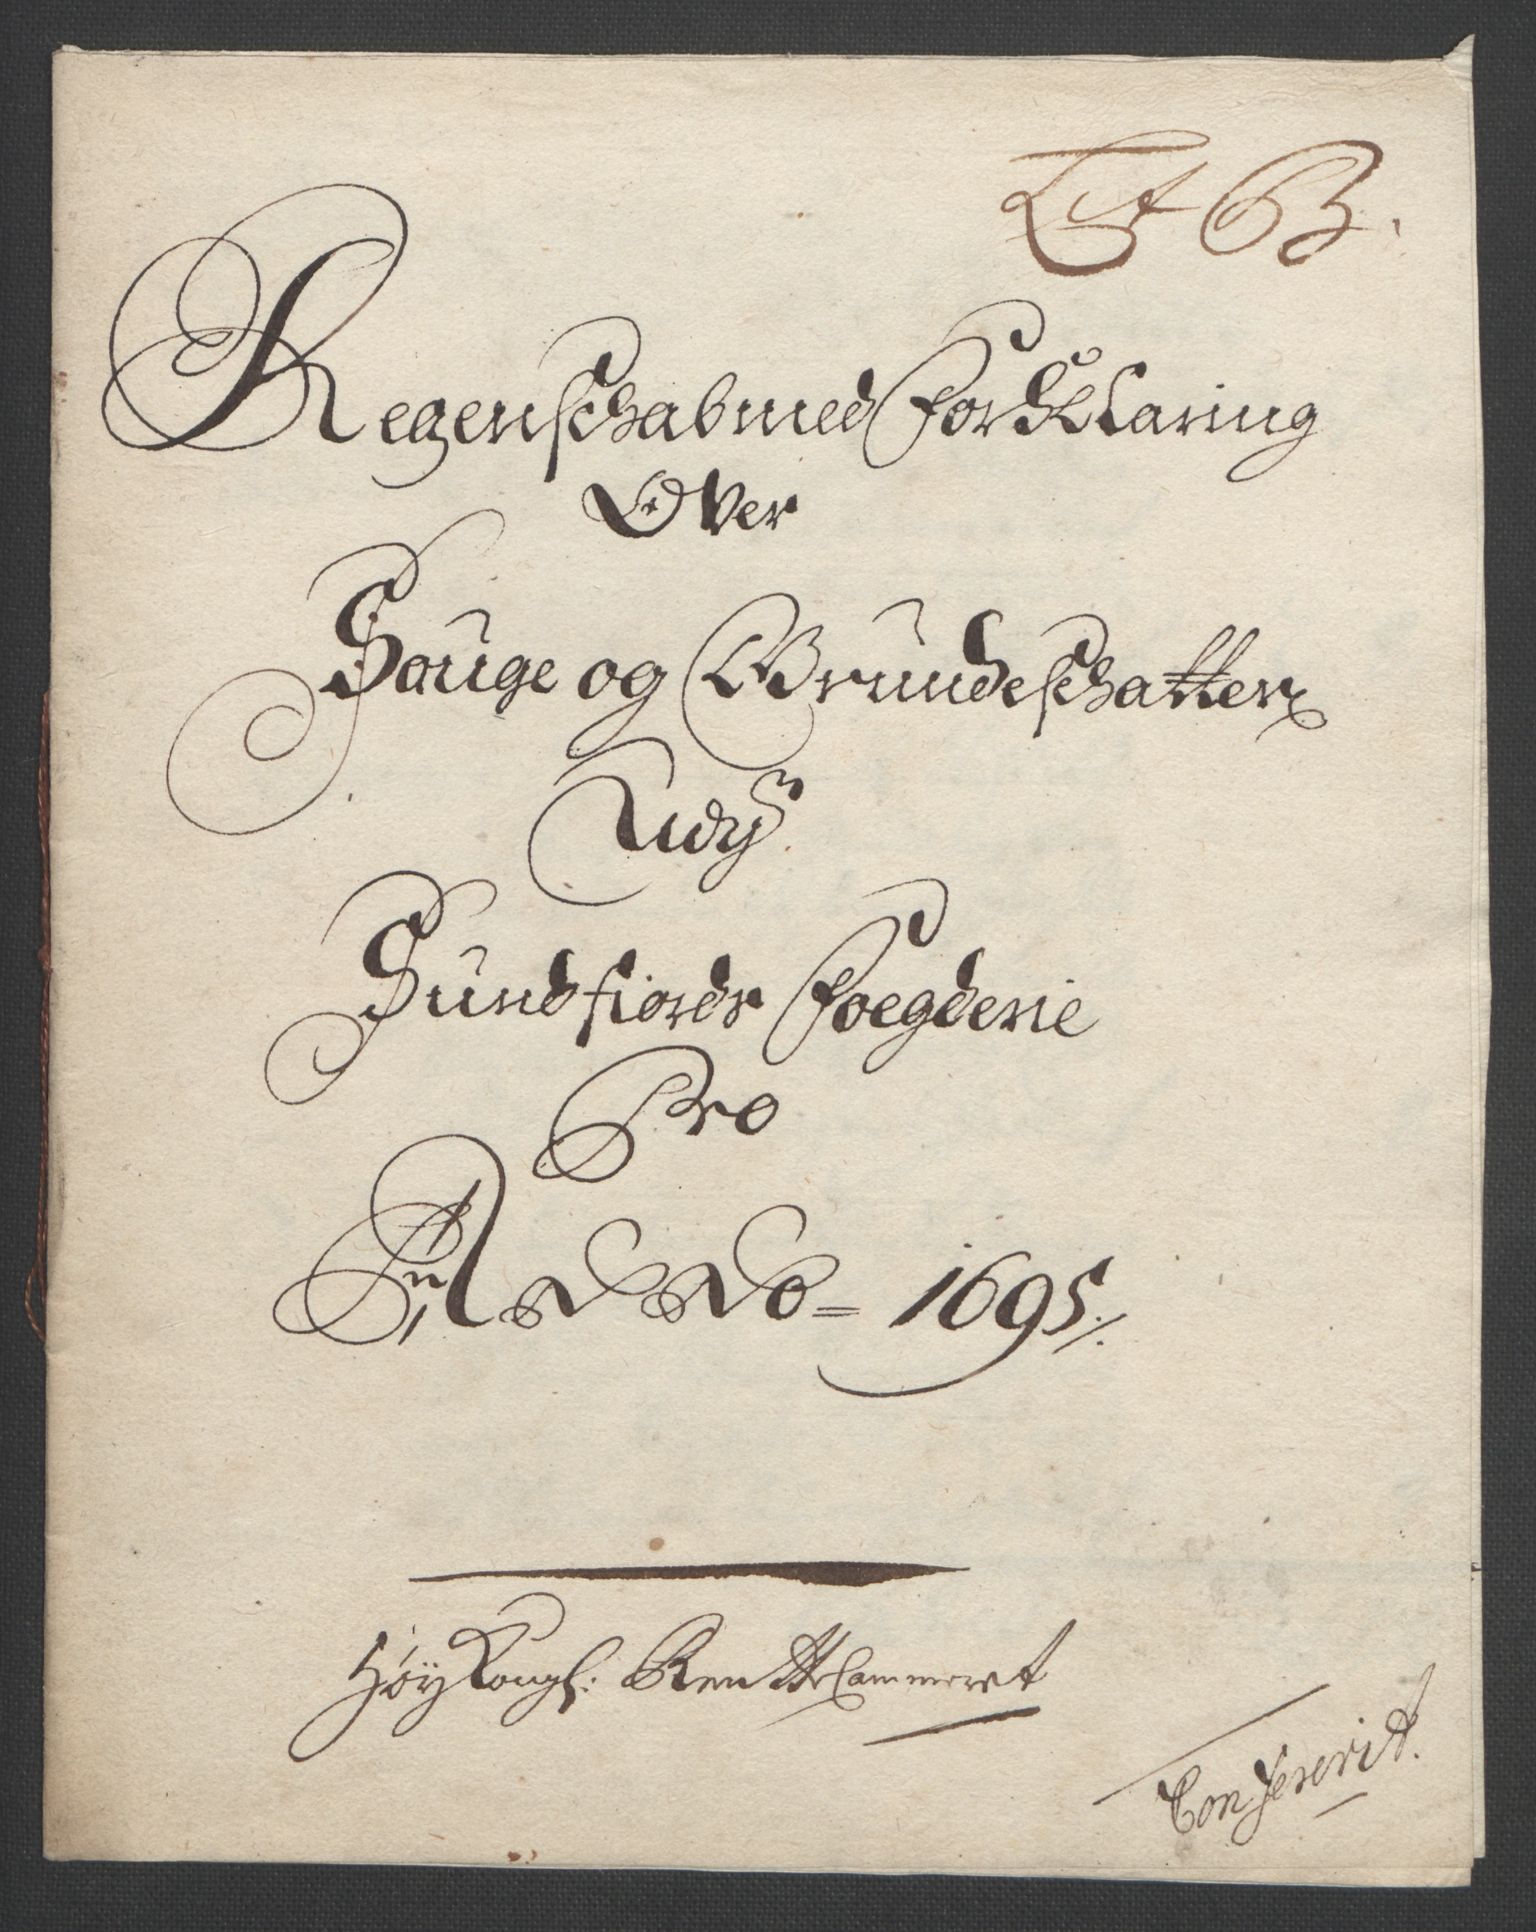 Lit B.
Regenschab med Forklaring
Over
Souge og Grundeschatter
Udj
Sundfiords Foegderie
Pro
Anno 1695.
Höy Kongl: RentteCammeret
Confererit.